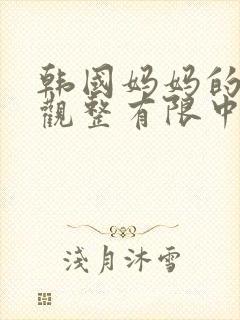 韩国妈妈的
觀整有限中
淺月沐雪